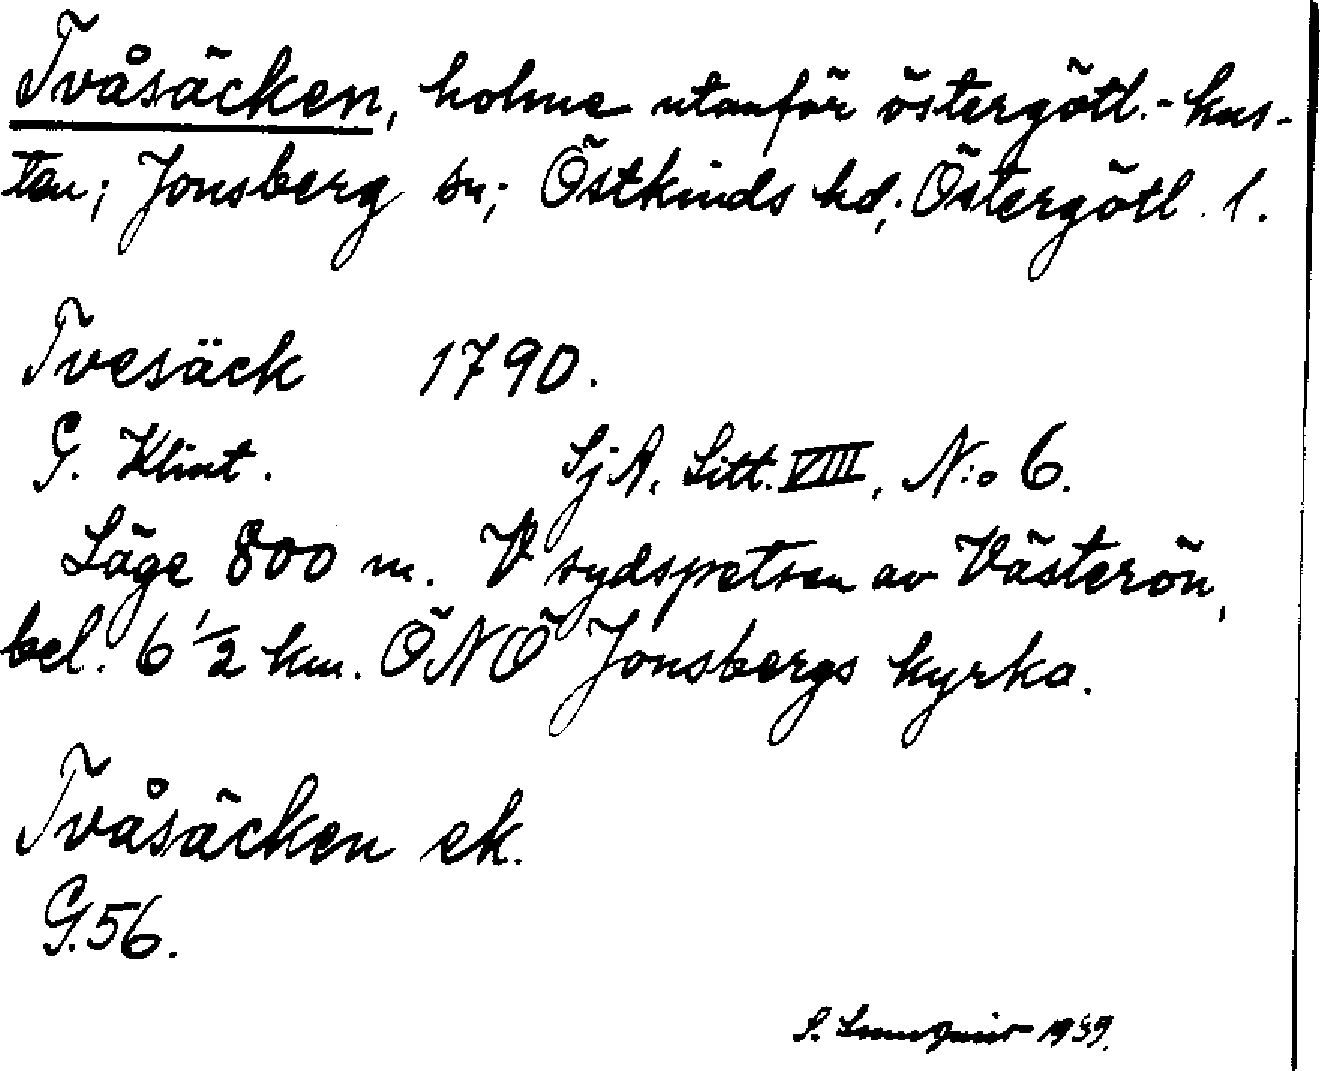 Tvåsäcken, holme utanför östergötl.-kus-
ten; Jonsberg sn; Östkinds hd; Östergötl. l.
Tvesäck 1790.
G. Klint. SjA. Litt. VIII, N:o 6.
Läge 800 m. V sydspetsen av Västerön,
bel. 6 1/2 km. ÖNÖ Jonsbergs kyrka.
Tvåsäcken ek.
G.56.
S. 1939.